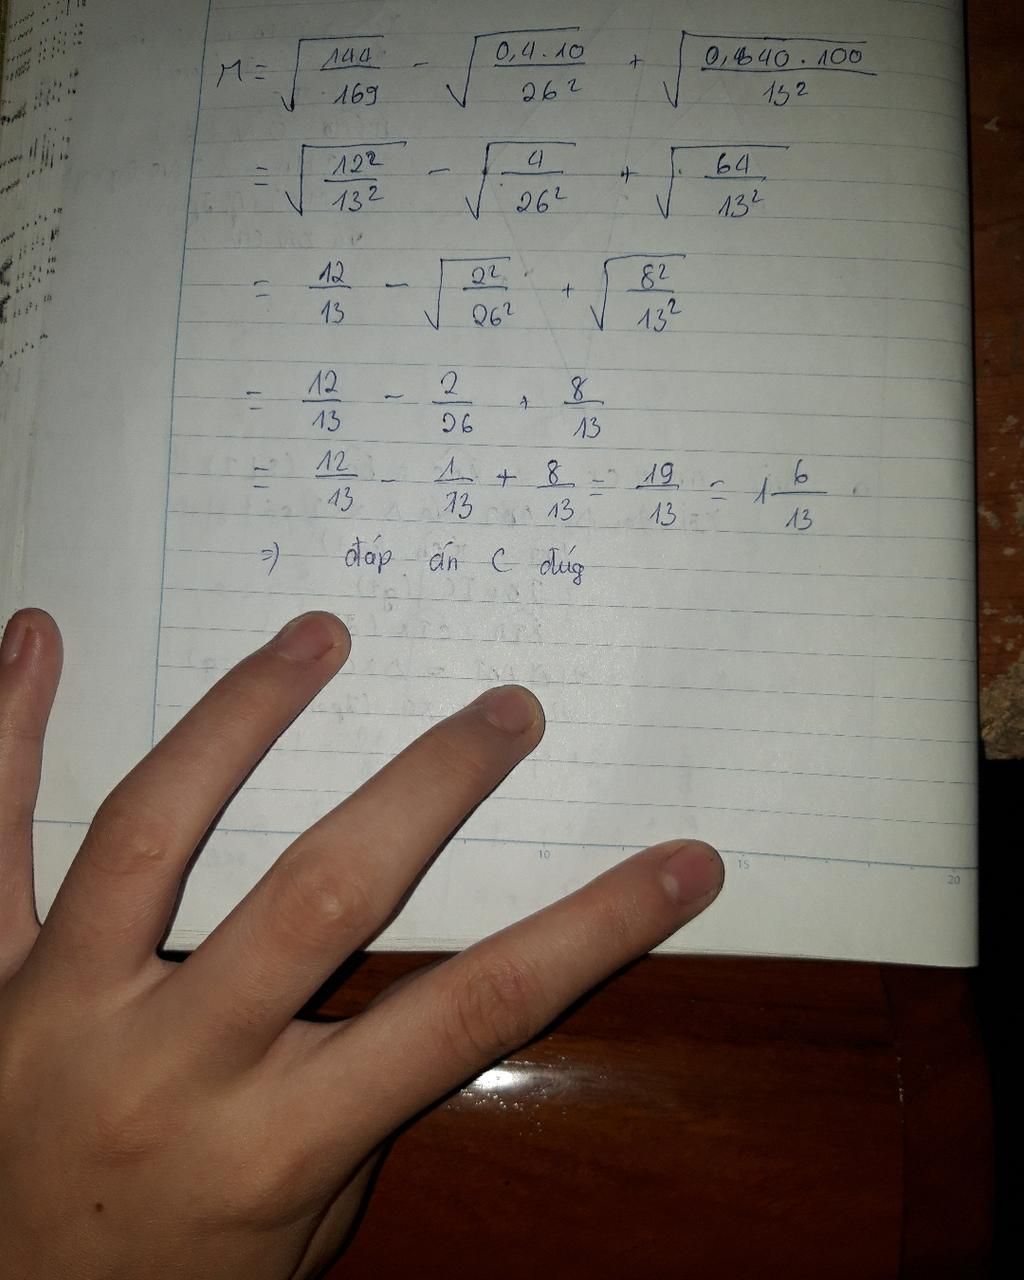 M = √(144/169) - √(0,4.10/26²) + √(0,640.100/13²)
= √(12²/13²) - √(4/26²) + √(64/13²)
= 12/13 - √(2²/26²) + √(8²/13²)
= 12/13 - 2/26 + 8/13
= 12/13 - 1/13 + 8/13 = 19/13 = 1 6/13
=) đáp án C đúg
10 15 20